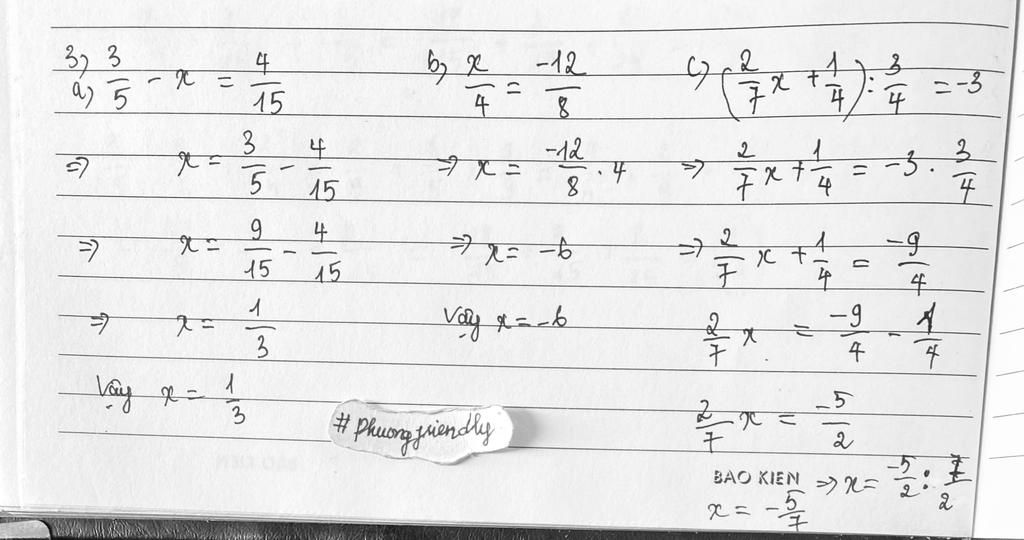 3, a) 3/5 - x = 4/15
⇒ x = 3/5 - 4/15
⇒ x = 9/15 - 4/15
⇒ x = 1/3
Vậy x = 1/3
b) x/4 = -12/8
⇒ x = -12/8 . 4
⇒ x = -6
Vậy x = -6
c) (2/7 x + 1/4) : 3/4 = -3
⇒ 2/7 x + 1/4 = -3 . 3/4
⇒ 2/7 x + 1/4 = -9/4
2/7 x = -9/4 - 1/4
2/7 x = -5/2
⇒ x = -5/2 : 7/2
x = -5/7
#phuongfriendly
BAO KIEN